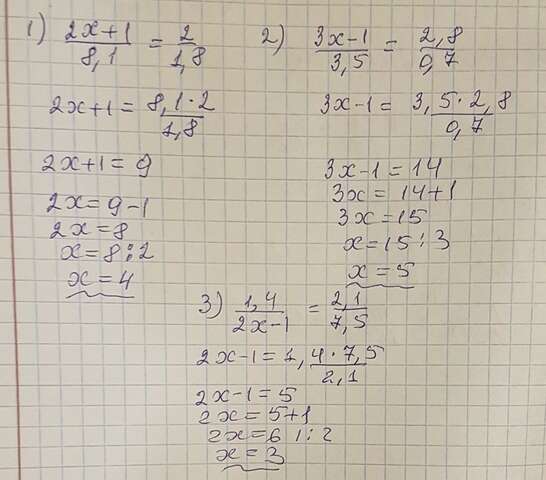 1) (2x+1)/8,1 = 2/1,8
2x+1 = (8,1·2)/1,8
2x+1 = 9
2x = 9-1
2x = 8
x = 8:2
x = 4
2) (3x-1)/3,5 = 2,8/0,7
3x-1 = (3,5·2,8)/0,7
3x-1 = 14
3x = 14+1
3x = 15
x = 15:3
x = 5
3) 1,4/(2x-1) = 2,1/7,5
2x-1 = (1,4·7,5)/2,1
2x-1 = 5
2x = 5+1
2x = 6 /:2
x = 3